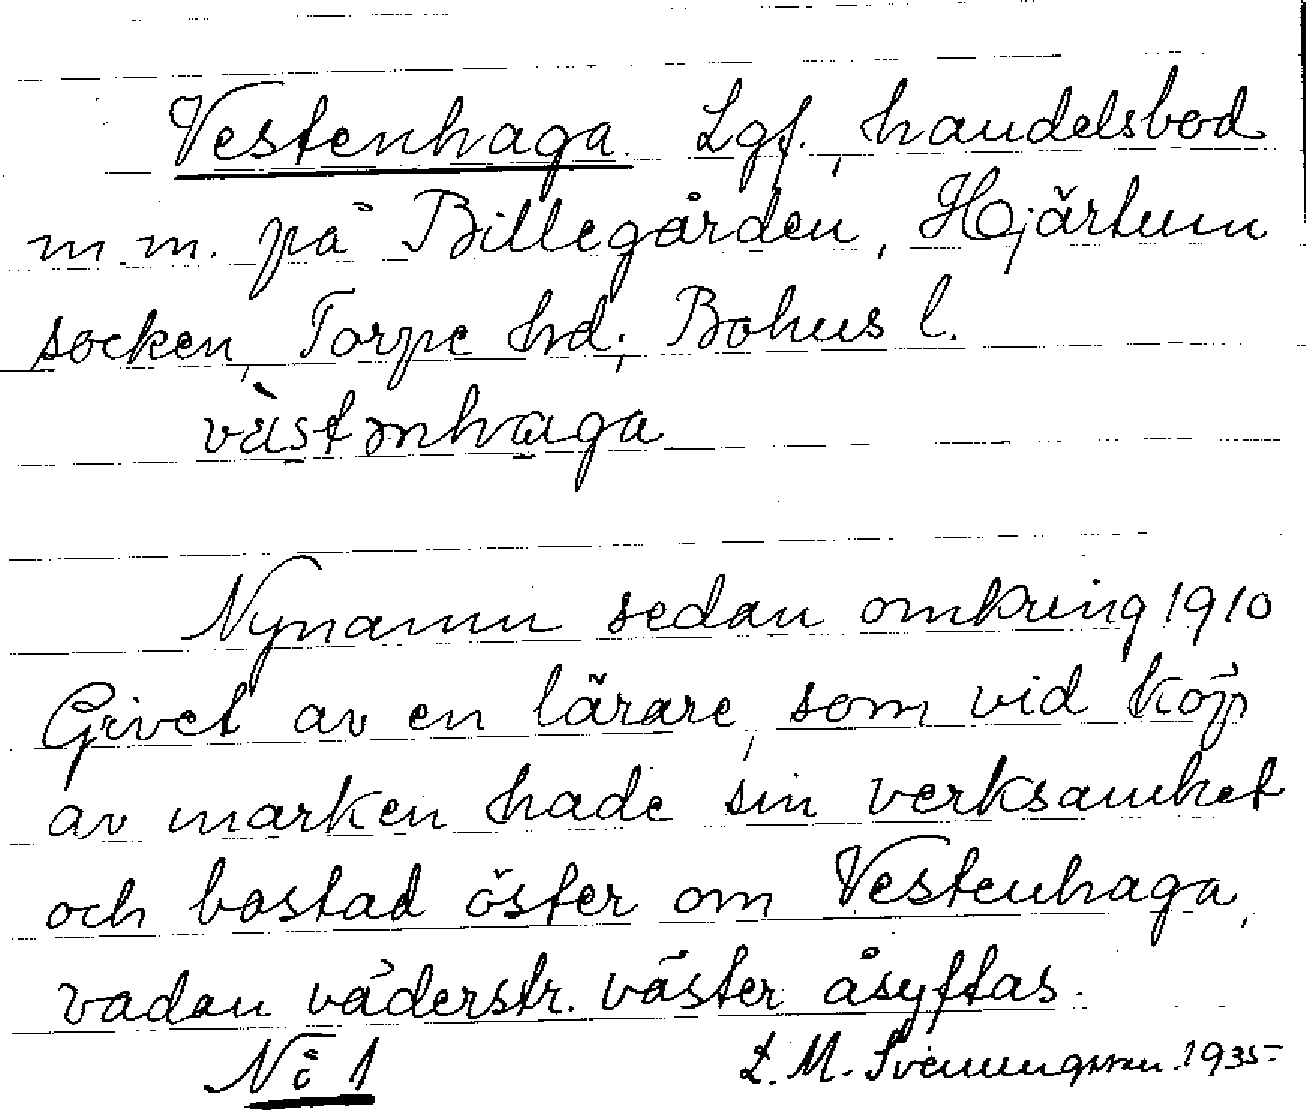 Vestenhaga. Lgf., handelsbod
m. m. på Billegården, Hjärtum
socken, Torpe hd; Bohus l.
vàstənhaga
Nynamn sedan omkring 1910
Givet av en lärare, som vid köp
av marken hade sin verksamhet
och bostad öster om Vestenhaga,
vadan väderstr. väster åsyftas.
N:o 1
L. M. Svenungsson. 1935